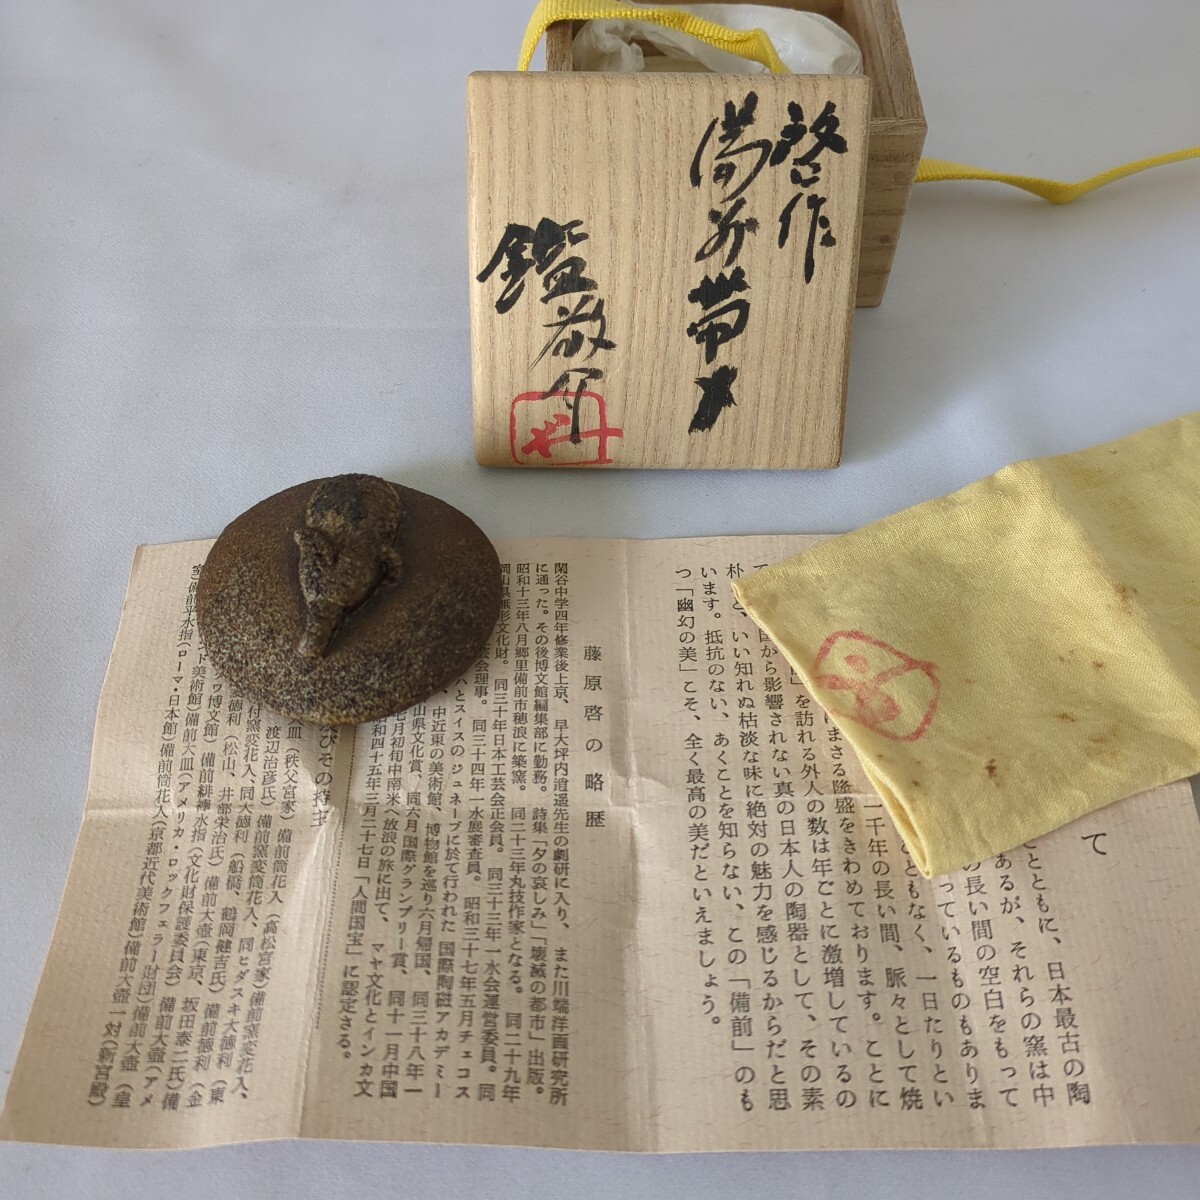 啓作
備前帯止
鑑 敬介
て
ことともに、日本最古の陶
あるが、それらの窯は中
の長い間の空白をもって
っているものもありま
ともなく、一日たりとい
一千年の長い間、脈々として焼
まさる隆盛をきわめております。ことに
を訪れる外人の数は年ごとに激増しているの
国から影響されない真の日本人の陶器として、その素
朴と、いい知れぬ枯淡な味に絶対の魅力を感じるからだと思
います。抵抗のない、あくことを知らない、この「備前」のも
つ「幽幻の美」こそ、全く最高の美だといえましょう。
藤原啓の略歴
閑谷中学四年修業後上京、早大坪内逍遥先生の劇研に入り、また川端洋画研究所
に通った。その後博文館編集部に勤務。詩集「夕の哀しみ」「壊滅の都市」出版。
昭和十三年八月郷里備前市穂浪に築窯。同二十三年丸技作家となる。同二十九年
岡山県無形文化財。同三十年日本工芸会正会員。同三十三年一水会運営委員。同
会理事。同三十四年一水展審査員。昭和三十七年五月チェコス
とスイスのジュネーブに於て行われた国際陶磁アカデミー
、中近東の美術館、博物館を巡り六月帰国、同三十八年一
山県文化賞、同六月国際グランプリー賞、同十一月中国
七月初旬中南米へ放浪の旅に出て、マヤ文化とインカ文
昭和四十五年三月二十七日「人間国宝」に認定さる。
びその持主
皿（秩父宮家）備前筒花入（高松宮家）備前窯変花入、
渡辺治彦氏）備前窯変筒花入、同ヒダスキ大徳利（東
付窯変花入、同大徳利（船橋、鶴岡健吉氏）備前徳利（金
徳利（松山、井部栄治氏）備前大壺（東京、坂田泰二氏）備
ワ博文館）備前緋襷水指（文化財保護委員会）備前大壺（アメ
ンド美術館）備前大皿（アメリカ・ロックフェラー財団）備前大壺（皇
室）備前平水指（ローマ・日本館）備前筒花入（京都近代美術館）備前大壺一対（新宮殿）